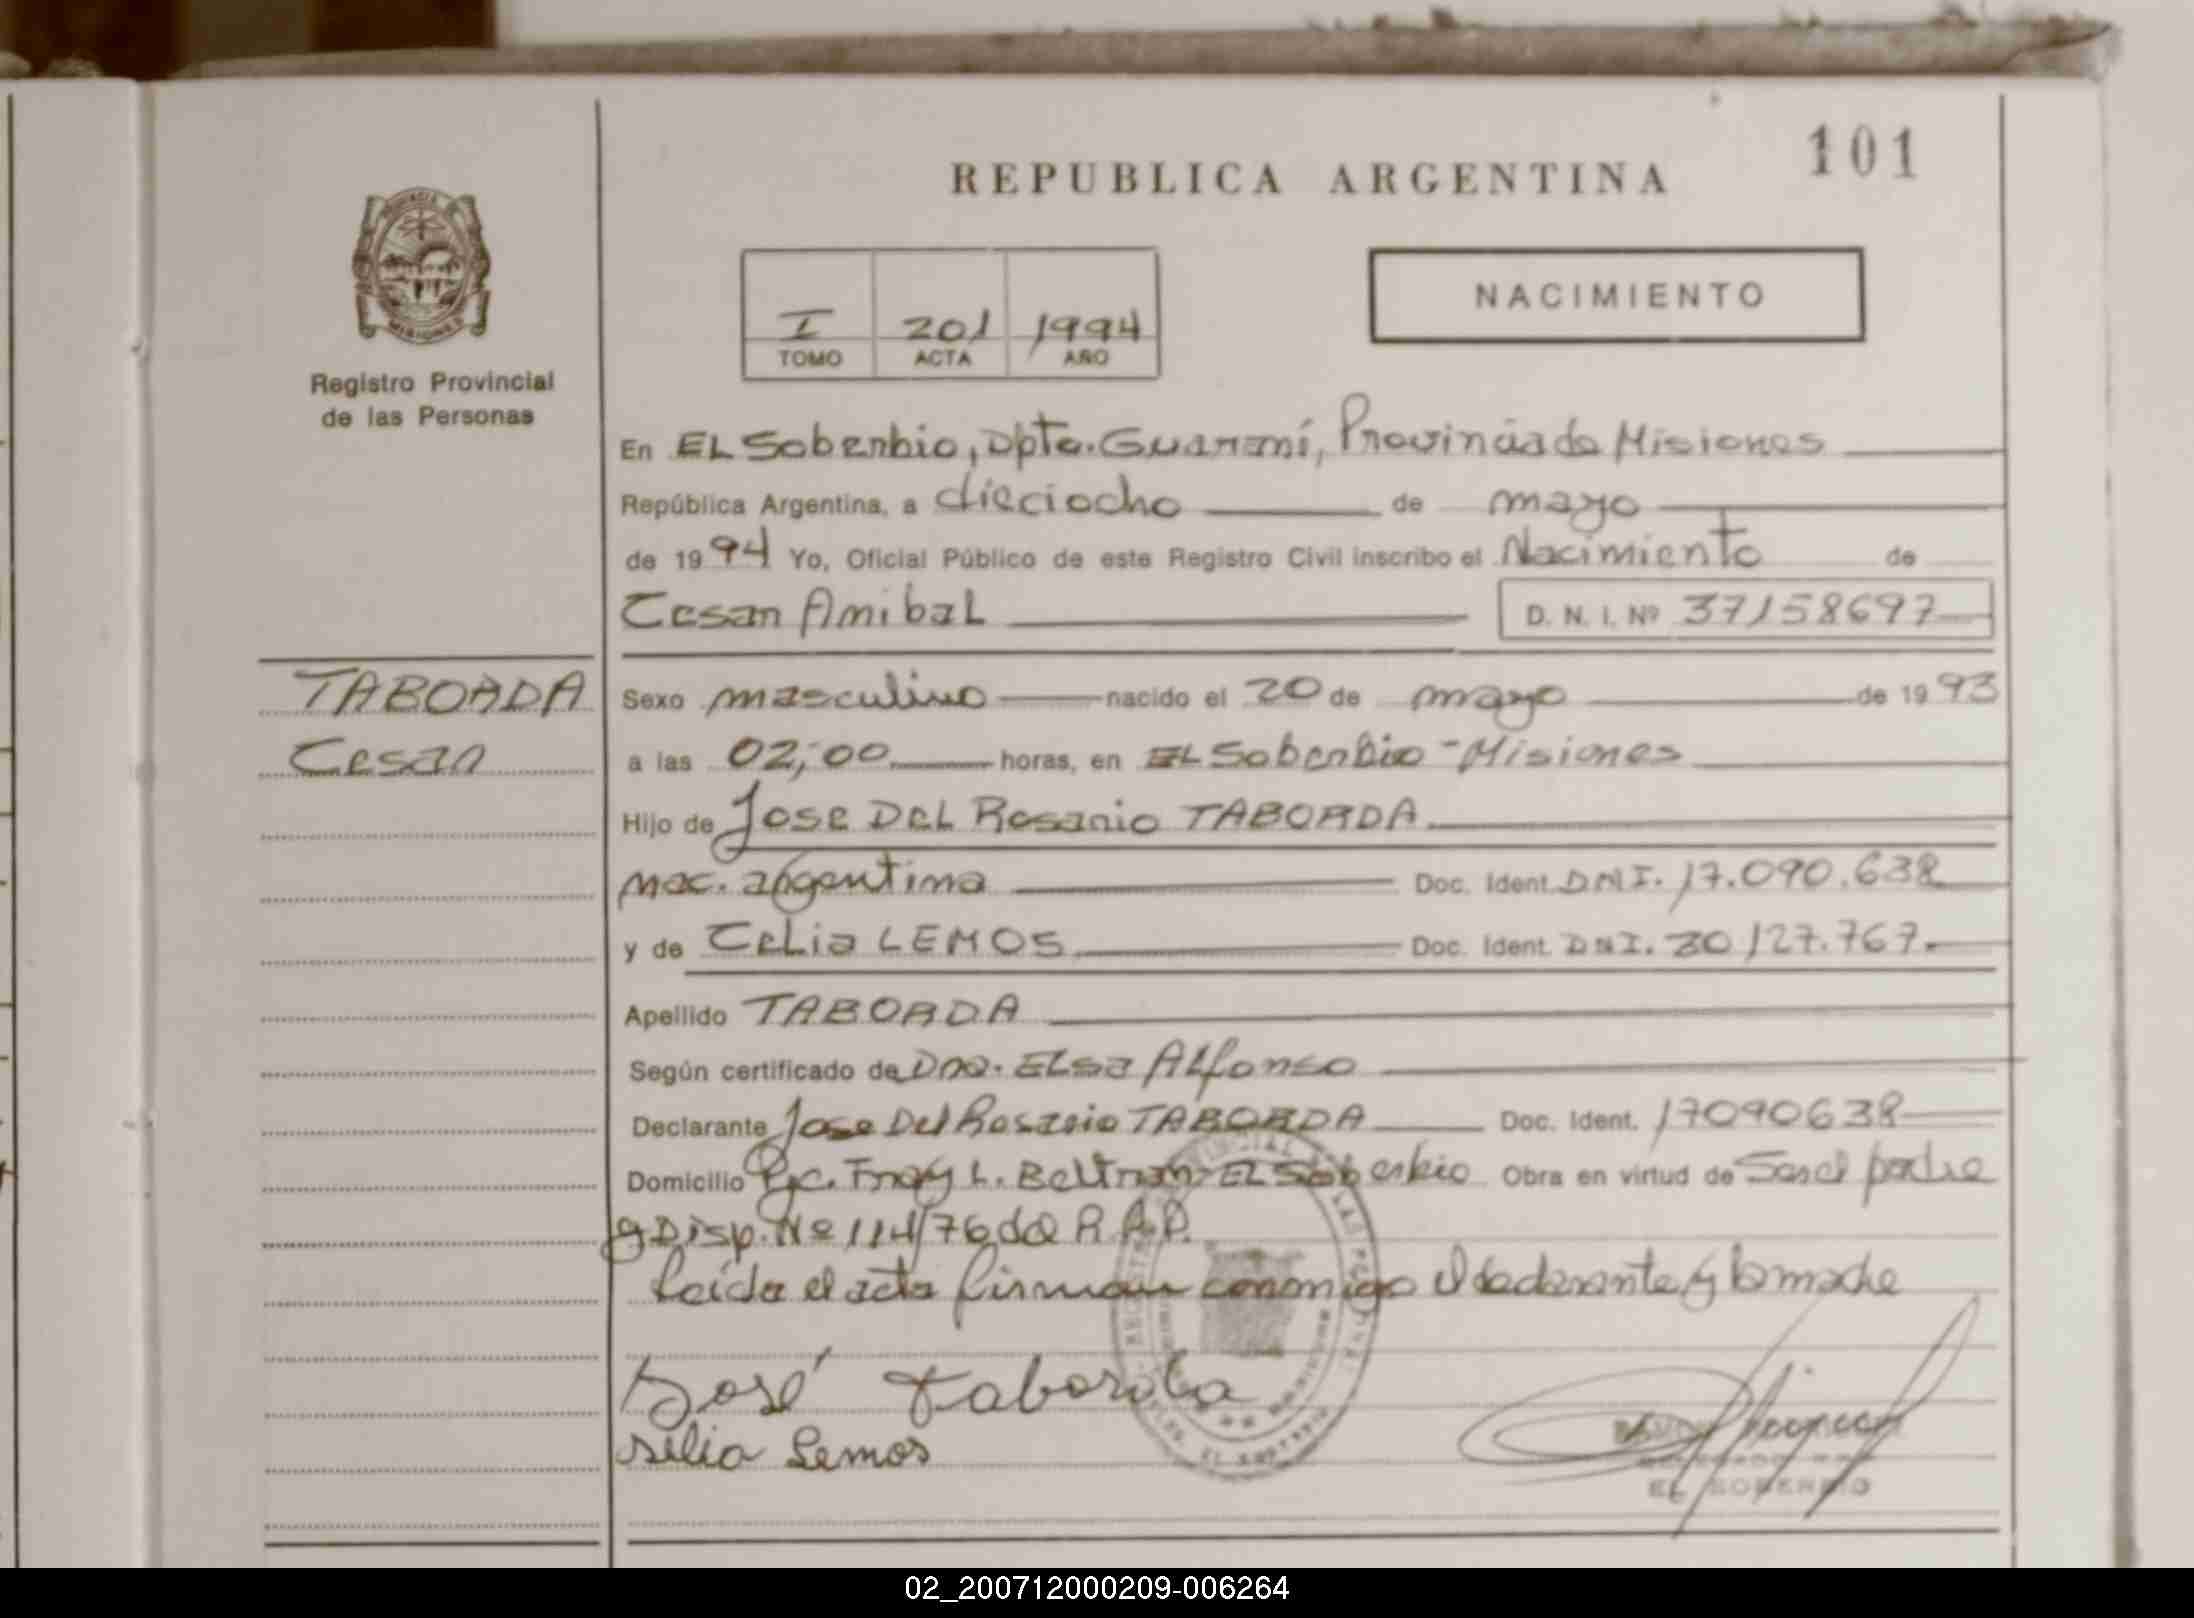 101
REPUBLICA ARGENTINA
NACIMIENTO
I 201 1994
TOMO ACTA AÑO
PROVINCIA DE MISIONES
Registro Provincial
de las Personas
En EL Soberbio, Dpto. Guaraní, Provincia de Misiones
República Argentina, a dieciocho de mayo
de 1994 Yo, Oficial Público de este Registro Civil inscribo el Nacimiento de
Cesar Anibal D. N. I. Nº 37158697
TABORDA
Cesar
Sexo masculino nacido el 20 de mayo de 1993
a las 02,00 horas, en EL Soberbio - Misiones
Hijo de Jose Del Rosario TABORDA
nac. argentina Doc. Ident. DNI. 17.090.638
y de Celia LEMOS Doc. Ident. DNI. 30 127.767.
Apellido TABORDA
Según certificado de Dna. Elsa Alfonso
Declarante Jose Del Rosario TABORDA Doc. Ident. 17090638
Domicilio Pje. Fray L. Beltran - EL Soberbio Obra en virtud de Ser el padre
y Disp. Nº 114/76 de R.A.P.
Leída el acta firman conmigo el declarante y la madre
José Taborda
silia Lemos
EL SOBERBIO
02_200712000209-006264